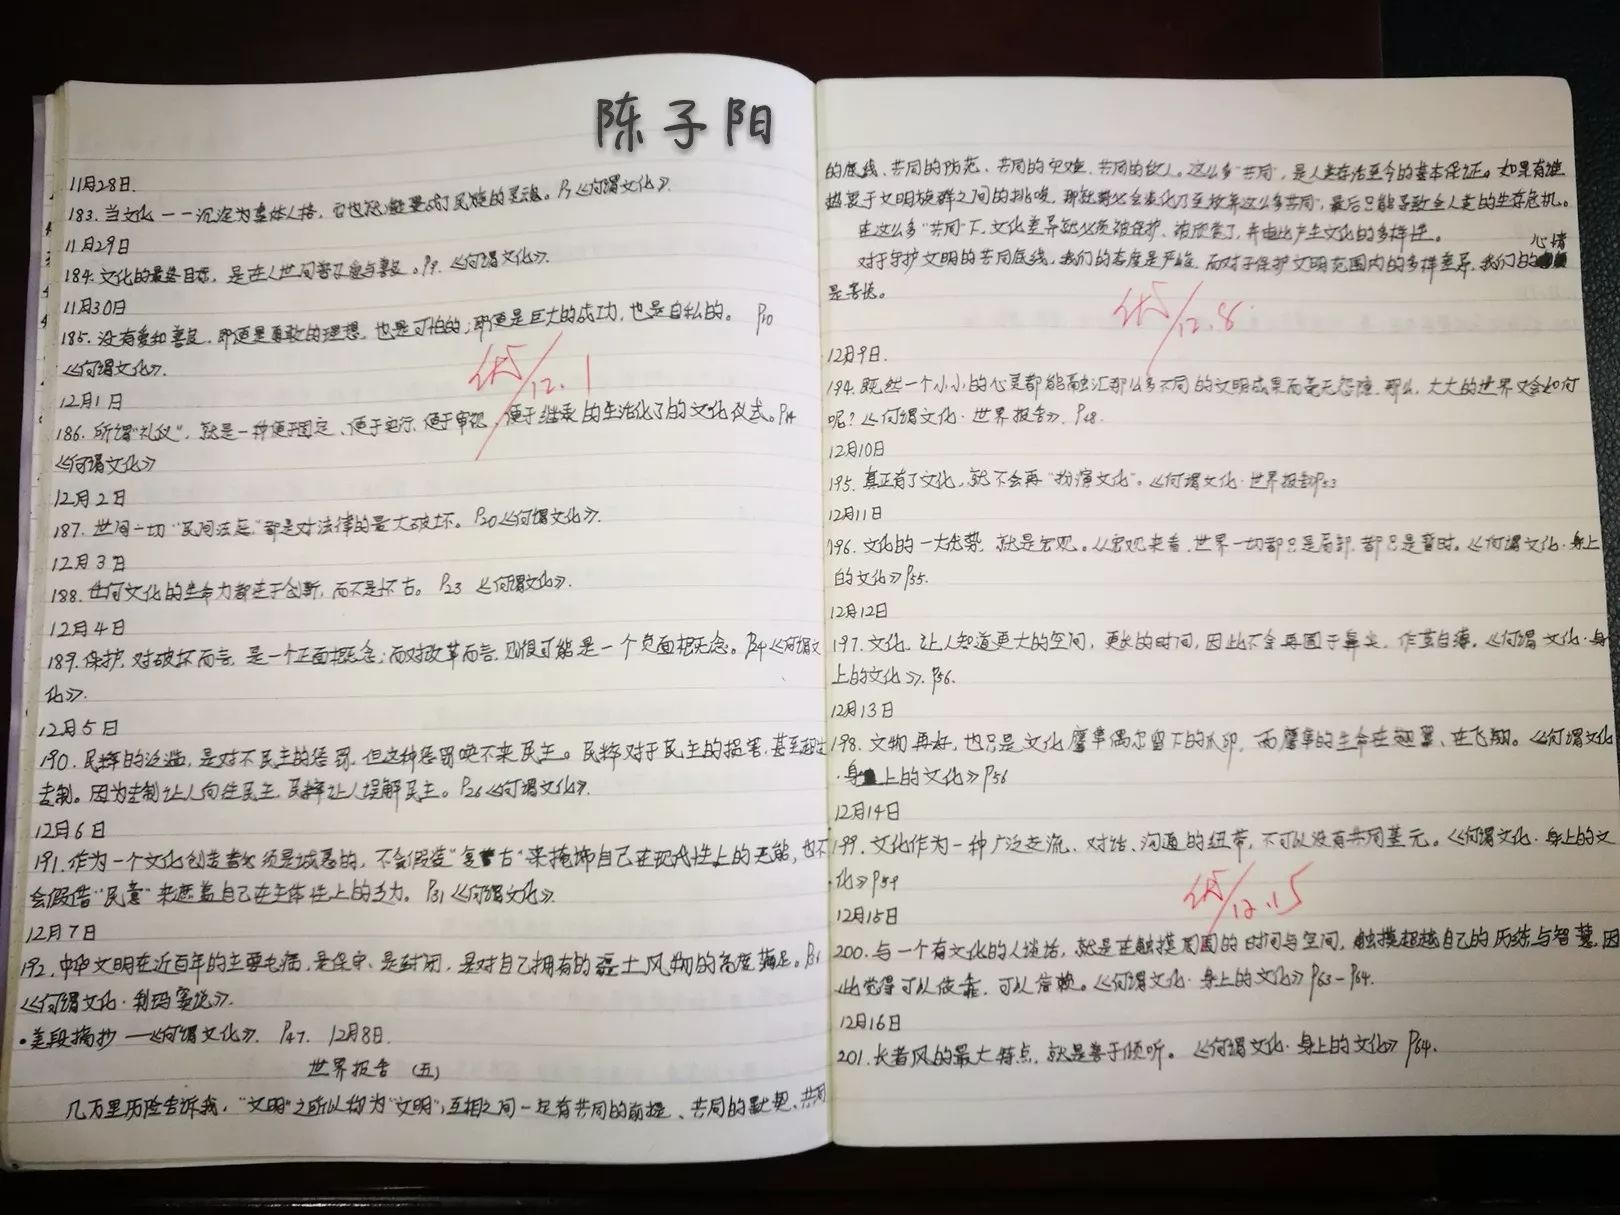 陈子阳
11月28日.
183.当文化一一沉淀为集体人格,它也就凝聚成了民族的灵魂。P7《何谓文化》.
11月29日
184.文化的最终目标,是在人世间普及爱与善良。P9.《何谓文化》.
11月30日
185.没有爱和善良,即便是勇敢的理想,也是可怕的;即便是巨大的成功,也是自私的。 P10
《何谓文化》.
优/12.1
12月1日
186.所谓“礼仪”,就是一种便于固定、便于实行、便于审视、便于继承的生活化了的文化仪式。P14
《何谓文化》
12月2日
187.世间一切“民间法庭”都是对法律的最大破坏。P20《何谓文化》.
12月3日
188.任何文化的生命力都在于创新,而不是怀古。P23 《何谓文化》.
12月4日
189.保护,对破坏而言,是一个正面概念;而对改革而言,则很可能是一个负面概念。P24《何谓文
化》.
12月5日
190.民粹的泛滥,是对不民主的惩罚,但这种惩罚唤不来民主。民粹对于民主的损害,甚至超过
专制。因为专制让人向往民主,民粹让人误解民主。P26《何谓文化》.
12月6日
191.作为一个文化创造者必须是诚恳的,不会假装“复古”来掩饰自己在现代性上的无能,也不
会假借“民意”来遮盖自己在主体性上的乏力。P31《何谓文化》.
12月7日
192.中华文明在近百年的主要毛病,是保守、是封闭,是对自己拥有的疆土风物的高度满足。P36
《何谓文化·利玛窦说》.
•美段摘抄—《何谓文化》. P47. 12月8日.
世界报告(五)
几万里历险告诉我,“文明”之所以称为“文明”,互相之间一定有共同的前提、共同的默契、共同
的底线、共同的防范、共同的灾难、共同的敌人。这么多“共同”,是人类存活至今的基本保证。如果有谁
热衷于文明族群之间的挑唆,那就势必会淡化乃至放弃这么多“共同”,最后只能导致全人类的生存危机。
在这么多“共同”下,文化差异就必须被保护、被欣赏了,并由此产生文化的多样性。
对于守护文明的共同底线,我们的态度是严峻,而对于保护文明范围内的多样差异,我们的心情
是喜悦。
优/12.8
12月9日.
194.既然一个小小的心灵都能融汇那么多不同的文明成果而毫无怨障,那么,大大的世界又会如何
呢?《何谓文化·世界报告》.P48.
12月10日
195.真正有了文化,就不会再“扮演文化”。《何谓文化·世界报告》P53
12月11日
196.文化的一大优势,就是宏观。从宏观来看,世界一切都只是局部,都只是暂时。《何谓文化·身上
的文化》P55.
12月12日
197.文化,让人知道更大的空间,更长的时间,因此不会再囿于鼻尖,作茧自缚。《何谓文化·身
上的文化》.P56.
12月13日
198.文物再好,也只是文化鹰隼偶尔留下的爪印,而鹰隼的生命在翅翼、在飞翔。《何谓文化
·身上的文化》P56
12月14日
199.文化作为一种广泛交流、对话、沟通的纽带,不可以没有共同基元。《何谓文化·身上的文
化》P59
优/12.15
12月15日
200.与一个有文化的人谈话,就是在触摸周围的时间与空间,触摸超越自己的历练与智慧,因
此觉得可以依靠,可以信赖。《何谓文化·身上的文化》P63-P64.
12月16日
201.长者风的最大特点,就是善于倾听。《何谓文化·身上的文化》P64.